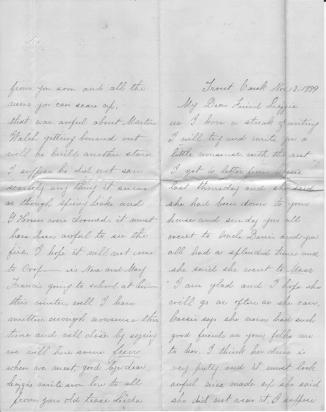 Trout Creek Nov 13. 1899
My Dear Friend Lizzie
as I have a streak of writing
I will try and write you a
little nonsense with the rest
I got a letter from
last Thursday and she said
she had been down to your
house and sunday you all
went to Uncle and you
all had a splendid time and
she said she went to Mass
I am glad and I hope she
will go as often as she can,
says she never had such
good friends as your folks are
to her. I think her dress is
very pretty and it must look
awful nice made up she said
she did not wear it I suppose
from you soon and all the
news you can scare up,
that was awful about Martin
Walsh getting burned out
will he build another store
I suppose he did not save
scarcely any thing it seems
as though Spring brooks and
were doomed it must
have been awful to see the
fire I hope it will not come
to is Rose and May
Francis going to school at
this winter. well I have
written enough nonsense this
time and will close by saying
we will have some
when we meet, good bye dear
Lizzie write soon love to all
from your old